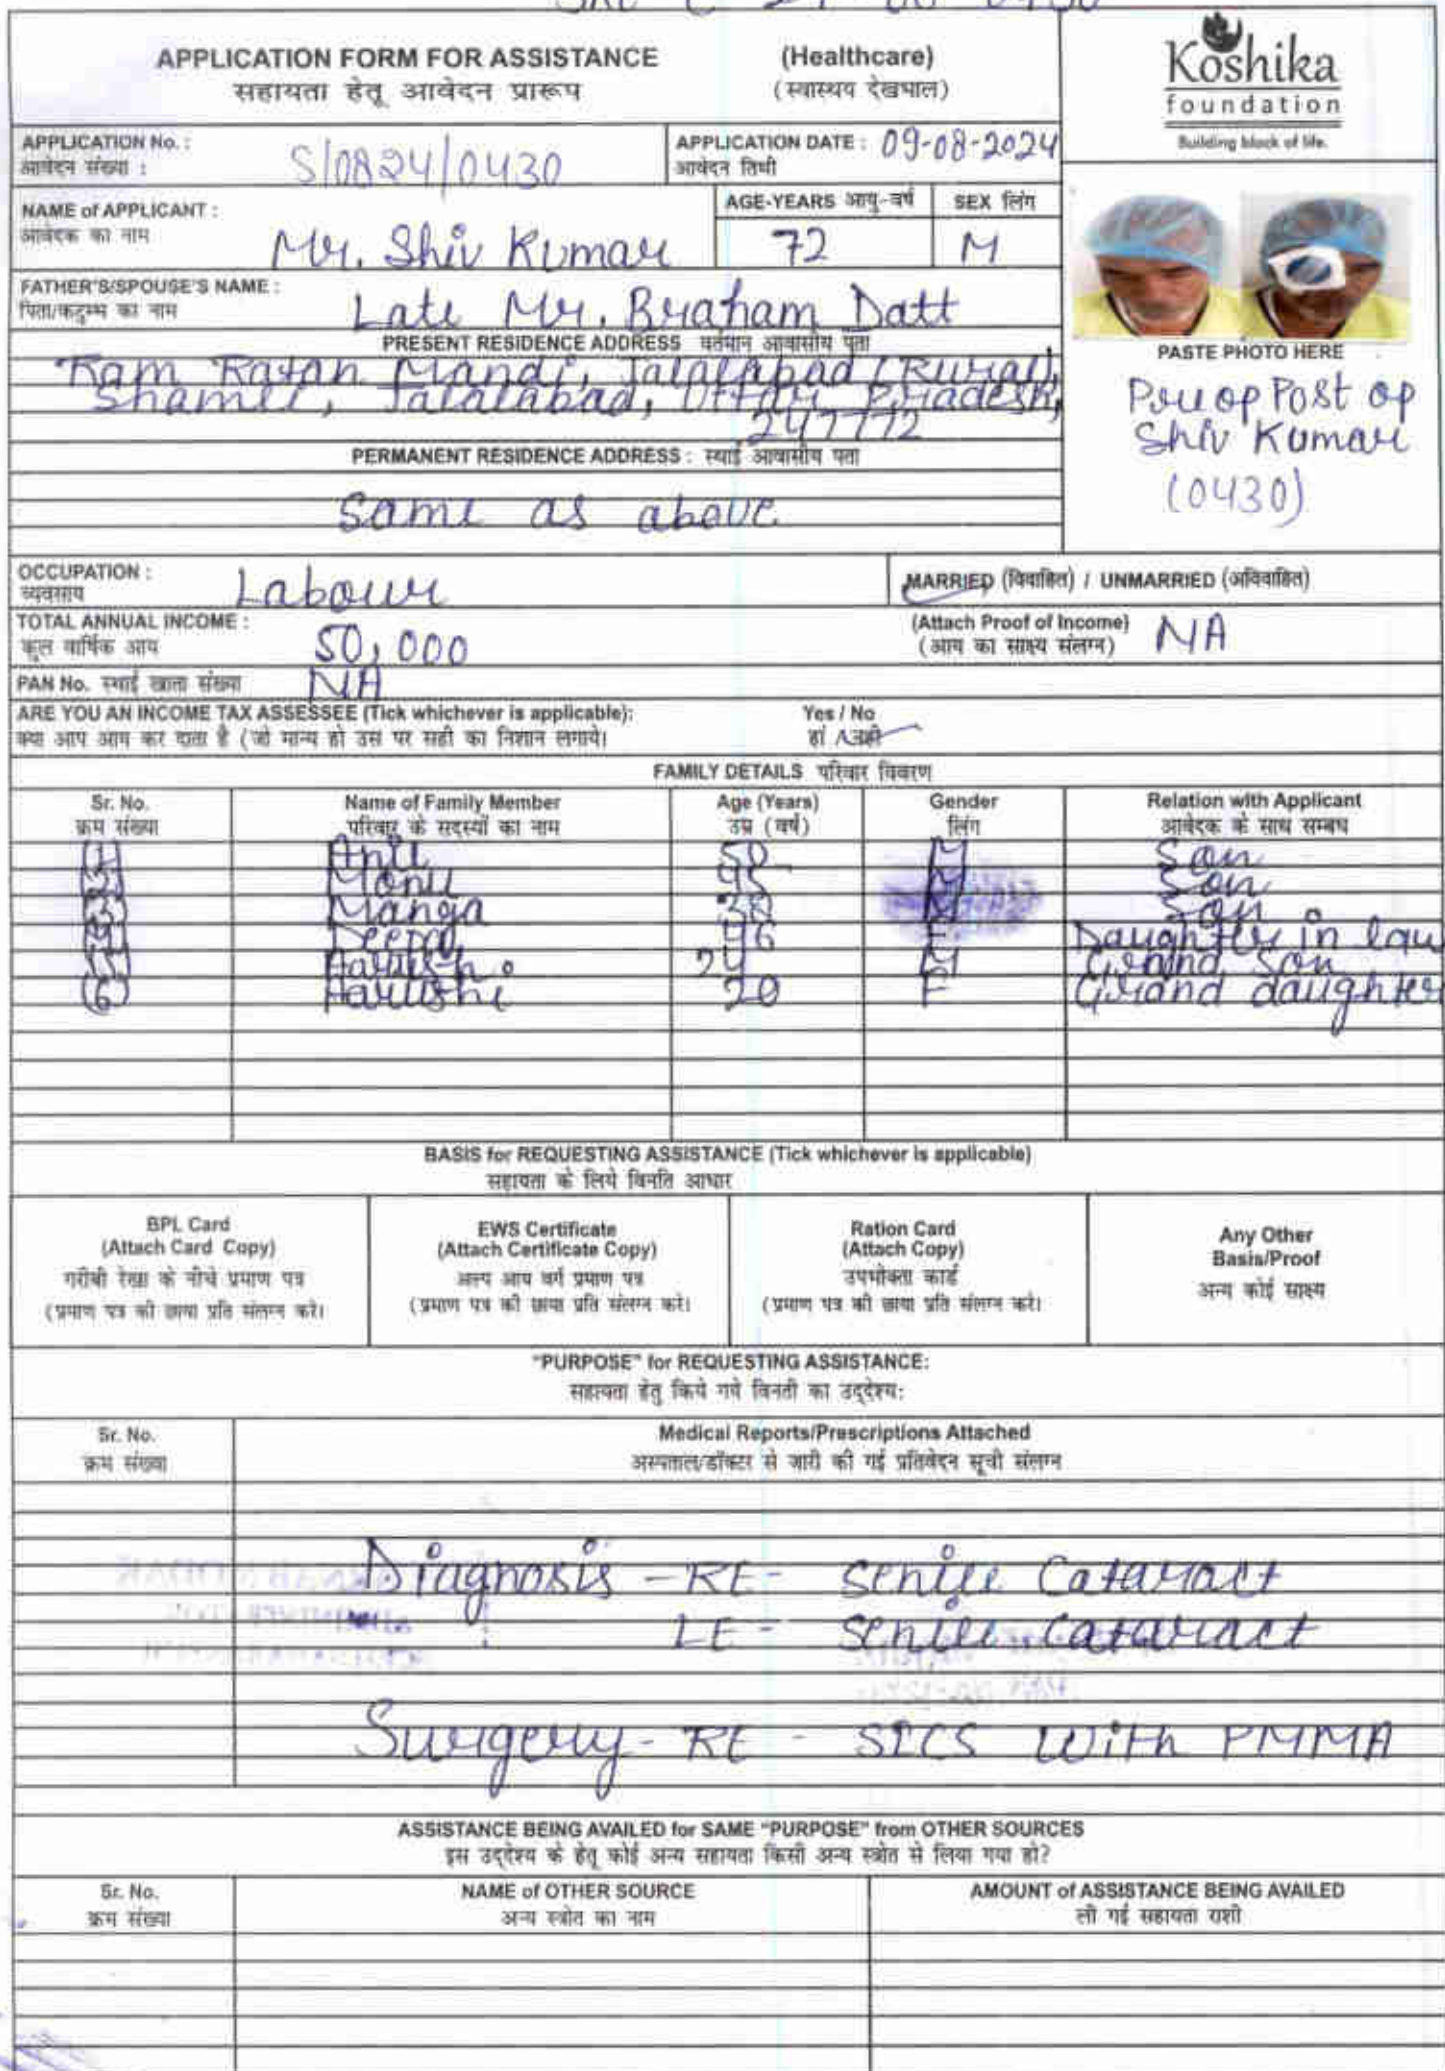 APPLICATION FORM FOR ASSISTANCE (Healthcare)
सहायता हेतू आवेदन प्रारूप (स्वास्थय देखभाल)
Koshika
foundation
Building block of life.
APPLICATION No. : S/0824/0430 APPLICATION DATE : 09-08-2024
आवेदन संख्या : आवेदन तिथी
NAME of APPLICANT : Mr. Shiv Kumar AGE-YEARS आयु-वर्ष 72 SEX लिंग M
आवेदक का नाम
FATHER'S/SPOUSE'S NAME : Late Mr. Braham Datt
पिता/कटुम्ब का नाम
PRESENT RESIDENCE ADDRESS वर्तमान आवासीय पता
Ram Ratan Mandi, Jalalabad (Rural),
Shamli, Jalalabad, Uttar Pradesh,
247772
PERMANENT RESIDENCE ADDRESS : स्थाई आवासीय पता
Same as above
PASTE PHOTO HERE
Pre op Post op
Shiv Kumar
(0430)
OCCUPATION : Labour MARRIED (विवाहित) / UNMARRIED (अविवाहित)
व्यवसाय
TOTAL ANNUAL INCOME : 50,000 (Attach Proof of Income) NA
कुल वार्षिक आय (आय का साक्ष्य संलग्न)
PAN No. स्थाई खाता संख्या NA
ARE YOU AN INCOME TAX ASSESSEE (Tick whichever is applicable): Yes / No
क्या आप आय कर दाता है (जो मान्य हो उस पर सही का निशान लगाये। हां / नही
FAMILY DETAILS परिवार विवरण
Sr. No. Name of Family Member Age (Years) Gender Relation with Applicant
क्रम संख्या परिवार के सदस्यों का नाम उम्र (वर्ष) लिंग आवेदक के साथ सम्बध
(1) Anil 50 M Son
(2) Monu 45 M Son
(3) Manga 38 M Son
(4) 46 F Daughter in law
(5) 24 M Grand Son
(6) Aarushi 20 F Grand daughter
BASIS for REQUESTING ASSISTANCE (Tick whichever is applicable)
सहायता के लिये विनति आधार
BPL Card
(Attach Card Copy)
गरीबी रेखा के नीचे प्रमाण पत्र
(प्रमाण पत्र की छाया प्रति संलग्न करे।
EWS Certificate
(Attach Certificate Copy)
अल्प आय वर्ग प्रमाण पत्र
(प्रमाण पत्र की छाया प्रति संलग्न करे।
Ration Card
(Attach Copy)
उपभोक्ता कार्ड
(प्रमाण पत्र की छाया प्रति संलग्न करे।
Any Other
Basis/Proof
अन्य कोई साक्ष्य
"PURPOSE" for REQUESTING ASSISTANCE:
सहायता हेतु किये गये विनती का उद्देश्य:
Sr. No. Medical Reports/Prescriptions Attached
क्रम संख्या अस्पताल/डॉक्टर से जारी की गई प्रतिवेदन सूची संलग्न
Diagnosis - RE - Senile Cataract
LE - Senile Cataract
Surgery - RE - SICS With PMMA
ASSISTANCE BEING AVAILED for SAME "PURPOSE" from OTHER SOURCES
इस उद्देश्य के हेतू कोई अन्य सहायता किसी अन्य स्त्रोत से लिया गया हो?
Sr. No. NAME of OTHER SOURCE AMOUNT of ASSISTANCE BEING AVAILED
क्रम संख्या अन्य स्त्रोत का नाम ली गई सहायता राशी